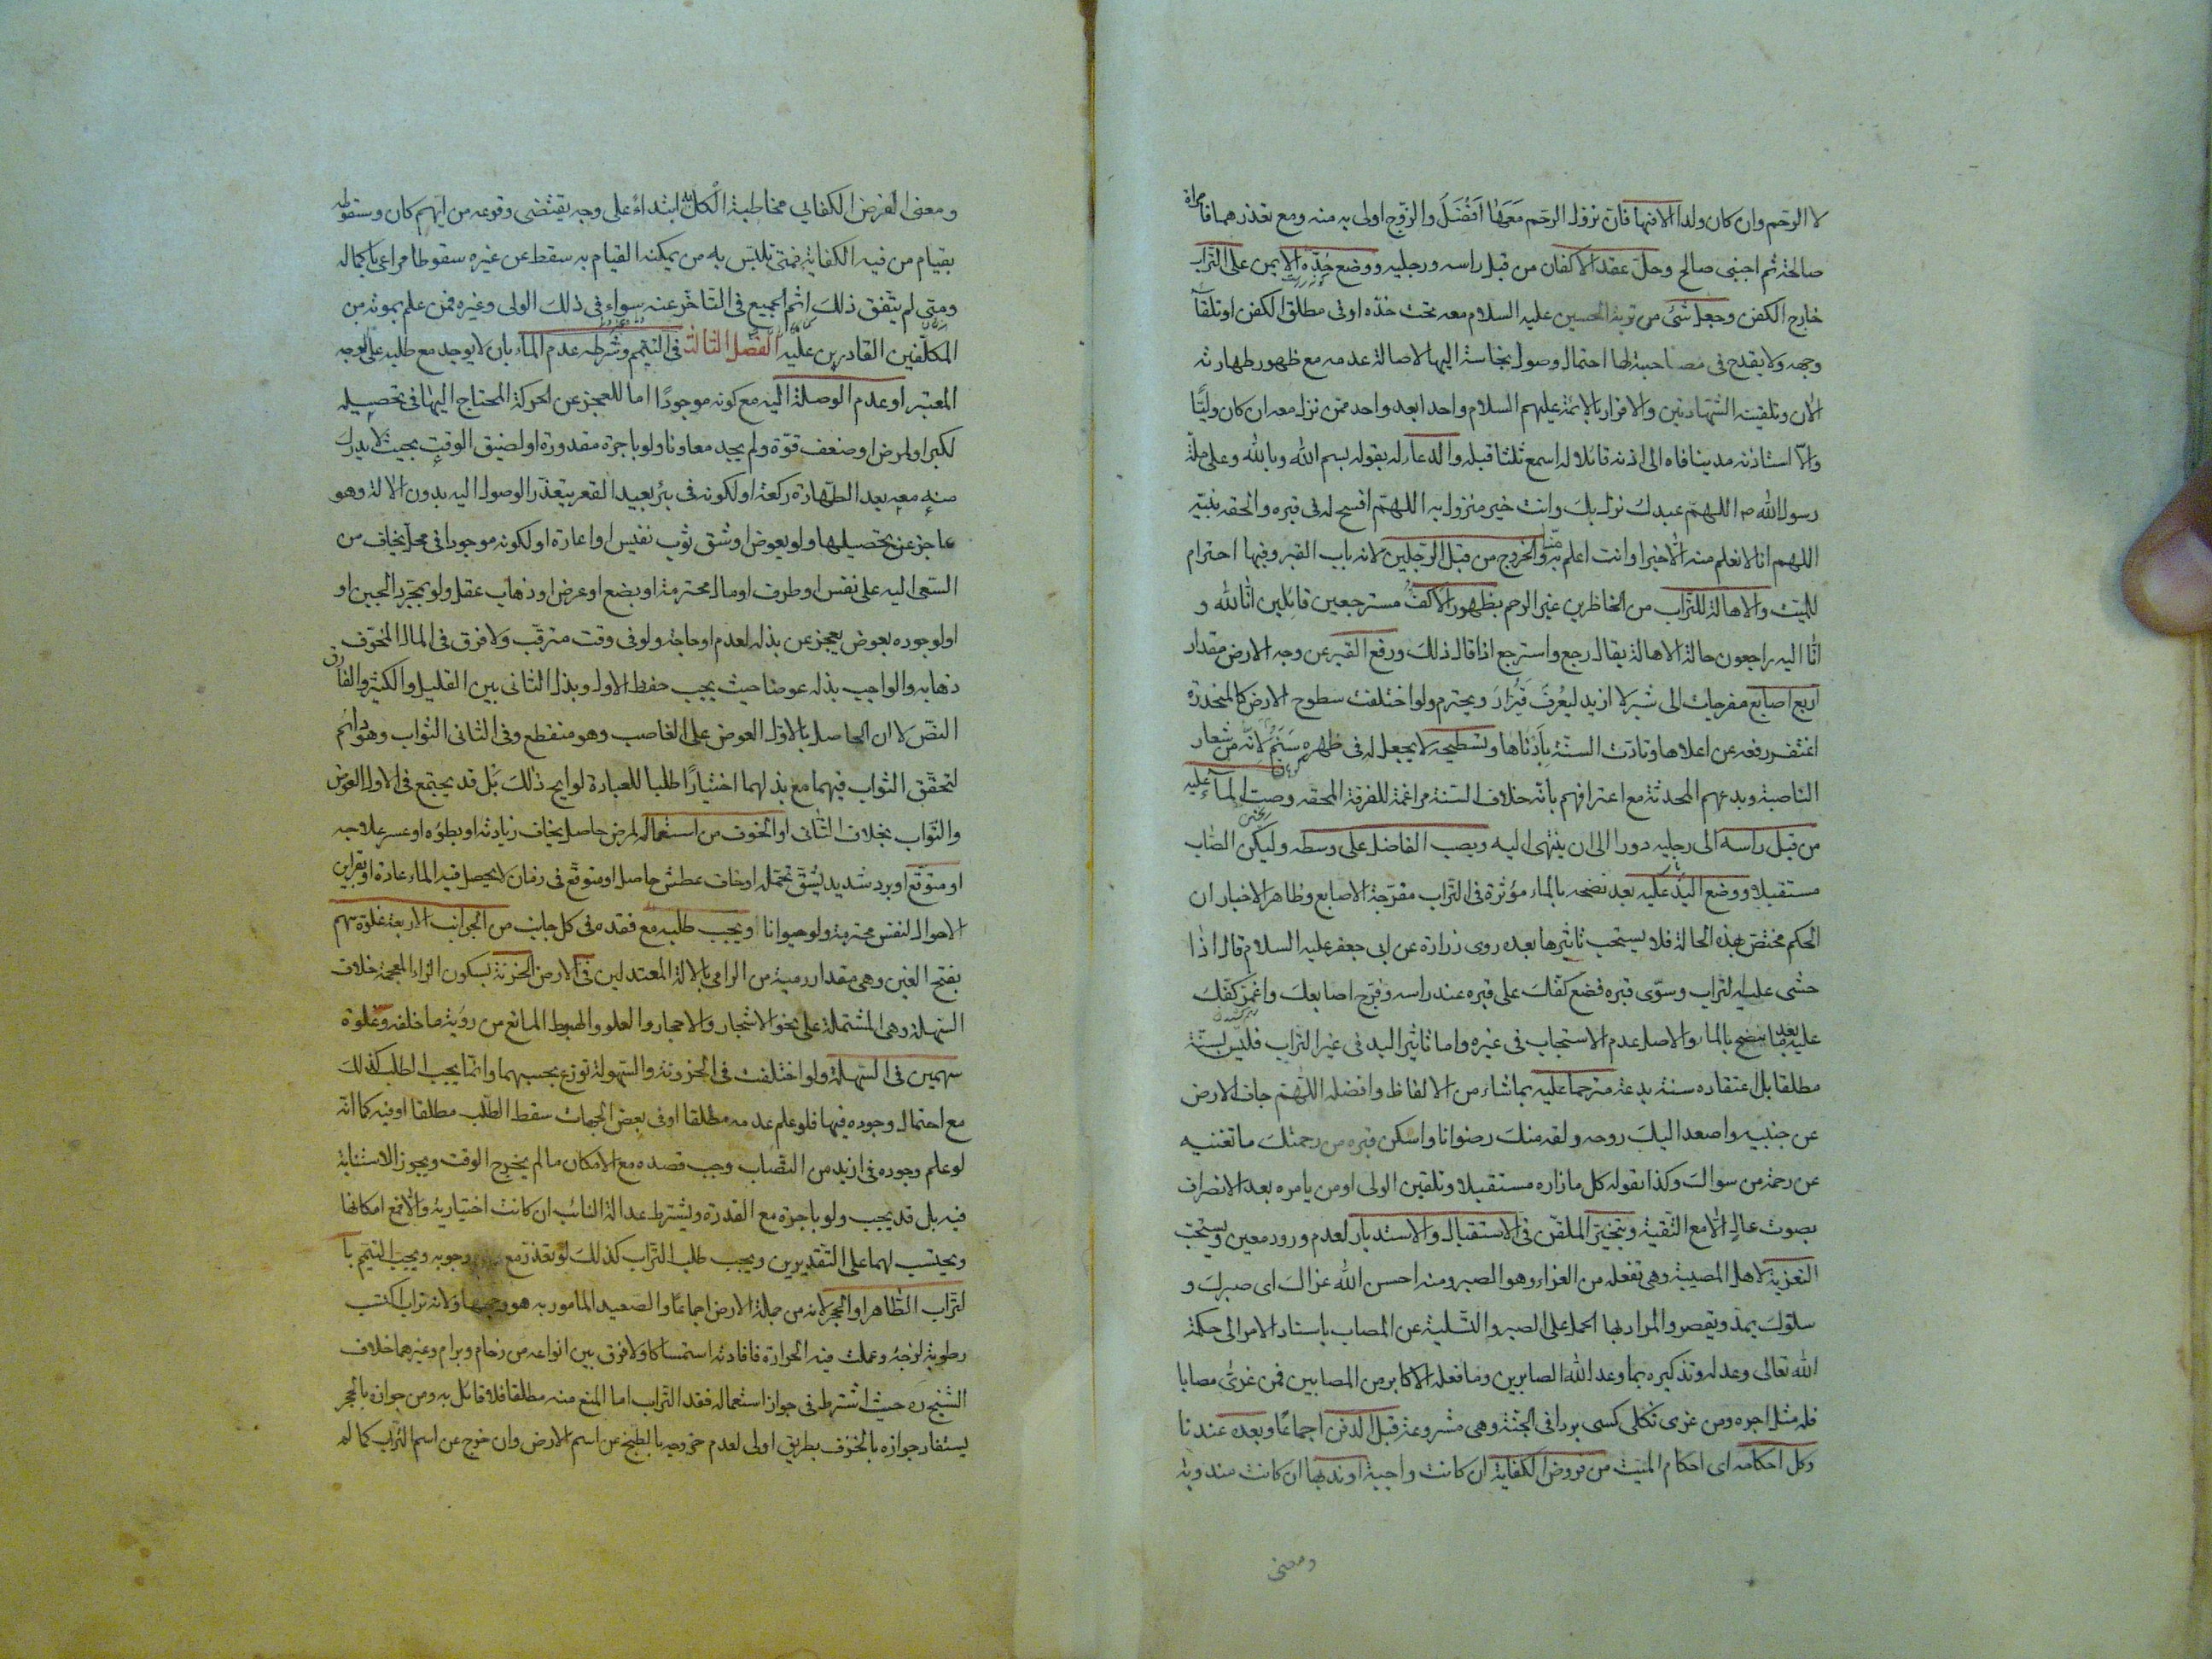 لا الرحم وان كان ولدا الا فيها فان نزول الرحم معها افضل والزوج اولى به منه ومع تعذرهما فامراة
صالحة ثم اجنبي صالح وحل عقد الاكفان من قبل راسه ورجليه ووضع خده الايمن على التراب
خارج الكفن وجعل شئ من تربة الحسين عليه السلام معه تحت خده او في مطلق الكفن او تلقاء
وجهه ولا يقدح في مصاحبته لها احتمال وصول نجاسة اليها لاصالة عدمه مع ظهور طهارته
الان وتلقينه الشهادتين والاقرار بالائمة عليهم السلام واحدا بعد واحد ممن نزل معه ان كان وليا
والا استاذنه مدنيا فاه الى اذنه قائلا له اسمع ثلثا قبله والدعاء له بقوله بسم الله وبالله وعلى ملة
رسول الله ص اللهم عبدك نزل بك وانت خير منزول به اللهم افسح له في قبره والحقه بنبيه
اللهم انا لا نعلم منه الا خيرا وانت اعلم به منا والخروج من قبل الرجلين لانه باب القبر وفيها احترام
للميت والاهالة للتراب من الحاضرين غير الرحم بظهور الاكف مسترجعين قائلين انا لله و
انا اليه راجعون حالة الاهالة يقال رجع واسترجع اذا قال ذلك ورفع القبر عن وجه الارض مقدار
اربع اصابع مفرجات الى شبر لا ازيد ليعرف فيزار ويحترم ولو اختلفت سطوح الارض كالمنحدرة
اغتفر رفعه عن اعلاها وتادت السنة بادناها وتسطيحه لا يجعل له في ظهره سنم لانه من شعار
الناصبة وبدعهم المحدثة مع اعترافهم بانه خلاف السنة مراغمة للفرقة المحقة وصب الماء عليه
من قبل راسه الى رجليه دورا الى ان ينتهى اليه ويصب الفاضل على وسطه وليكن الصاب
مستقبلا ووضع اليد عليه بعد نضحه بالماء مؤثرة في التراب مفرجة الاصابع وظاهر الاخبار ان
الحكم مختص بهذه الحالة فلا يستحب تاثيرها بعده روى زرارة عن ابى جعفر عليه السلام قال اذا
حثى عليه التراب وسوى قبره فضع كفك على قبره عند راسه وفرج اصابعك واغمز كفك
عليه بعد ما ينضح بالماء والاصل عدم الاستحباب في غيره واما تاثير اليد في غير التراب فليس بسنة
مطلقا بل اعتقاده سنة بدعة مترحما عليه بما شاء من الالفاظ وافضله اللهم جاف الارض
عن جنبيه واصعد اليك روحه ولقه منك رضوانا واسكن قبره من رحمتك ما تغنيه
عن رحمة من سواك وكذا يقوله كل ما زاره مستقبلا وتلقين الولى او من يامره بعد الانصراف
بصوت عال الا مع التقية ويتخير الملقن في الاستقبال والاستدبار لعدم ورود معين ويستحب
التعزية لاهل المصيبة وهى تفعلة من العزاء وهو الصبر ومنه احسن الله عزاك اى صبرك و
سلوك يمد ويقصر والمراد بها الحمل على الصبر والتسلية عن المصاب باسناد الامر الى حكمة
الله تعالى وعدله وتذكيره بما وعد الله الصابرين وما فعله الاكابر من المصابين فمن عزى مصابا
فله مثل اجره ومن عزى ثكلى كسى بردا في الجنة وهى مشروعة قبل الدفن اجماعا وبعده عندنا
وكل احكامه اى احكام الميت من فروض الكفاية ان كانت واجبة او ندبها ان كانت مندوبة
ومعنى
ومعنى الفرض الكفايي مخاطبة الكل به ابتداء على وجه يقتضى وقوعه من ايهم كان وسقوطه
بقيام من فيه الكفاية فمتى تلبس به من يمكنه القيام به سقط عن غيره سقوطا مراعى باكماله
ومتى لم يتفق ذلك اثم الجميع في التاخر عنه سواء في ذلك الولى وغيره ممن علم بموته من
المكلفين القادرين عليه الفصل الثالث في التيمم وشرطه عدم الماء بان لا يوجد مع طلبه على الوجه
المعتبر او عدم الوصلة اليه مع كونه موجودا اما للعجز عن الحركة المحتاج اليها في تحصيله
لكبر او لمرض او ضعف قوة ولم يجد معاونا ولو باجرة مقدورة او لضيق الوقت بحيث لا يدرك
منه معه بعد الطهارة ركعة او لكونه في بئر بعيد القعر يتعذر الوصول اليه بدون الالة وهو
عاجز عن تحصيلها ولو بعوض او شق ثوب نفيس او اعارة او لكونه موجودا في محل يخاف من
السعى اليه على نفس او طرف او مال محترمة او بضع او عرض او ذهاب عقل ولو بمجرد الجبن او
او لوجوده بعوض يعجز عن بذله لعدم او حاجة ولو في وقت مترقب ولا فرق في المال المخوف
ذهابه والواجب بذله عوضا حيث يجب حفظ الاول وبذل الثانى بين القليل والكثير والفارق
النص لا ان الحاصل بالاول العوض على الغاصب وهو منقطع وفي الثانى الثواب وهو دائم
لتحقق الثواب فيهما مع بذلهما اختيارا طلبا للعبادة لو ابيح ذلك بل قد يجتمع في الاول العوض
والثواب بخلاف الثانى او الخوف من استعماله لمرض حاصل يخاف زيادته او بطؤه او عسر علاجه
او متوقع او برد شديد ليشق تحمله او خاف عطش حاصل او متوقع في زمان لا يحصل فيه الماء عادة او بقراين
الاحوال لنفس محترمة ولو حيوانا ويجب طلبه مع فقده في كل جانب من الجوانب الاربعة غلوة سهم
بفتح الغين وهى مقدار رمية من الرامى بالالة المعتدلين في الارض الحزنة بسكون الزاء المعجمة خلاف
السهلة وهى المشتملة على نحو الاشجار والاحجار والعلو والهبوط المانع من رؤية ما خلفه وغلوة
سهمين في السهلة ولو اختلفت في الحزونة والسهولة توزع بحسبهما وانما يجب الطلب كذلك
مع احتمال وجوده فيها فلو علم عدمه مطلقا او في بعض الجهات سقط الطلب مطلقا او فيه كما انه
لو علم وجوده في ازيد من النصاب وجب قصده مع الامكان ما لم يخرج الوقت ويجوز الاستنابة
فيه بل قد يجب ولو باجرة مع القدرة ويشترط عدالة النائب ان كانت اختيارية والا فمع امكانها
ويحتسب لهما على التقديرين ويجب طلب التراب كذلك لو تعذر مع وجوبه ويجب التيمم با
لتراب الطاهر او الحجر لانه من جملة الارض اجماعا والصعيد المامور به هو وجهها ولانه تراب اكتسب
رطوبة لزجة وعملت فيه الحرارة فافادته استمساكا ولا فرق بين انواعه من رخام وبرام وغيرهما خلاف
للشيخ ره حيث اشترط في جواز استعماله فقد التراب اما المنع منه مطلقا فلا قائل به ومن جوازه بالحجر
يستفاد جوازه بالخزف بطريق اولى لعدم خروجه بالطبخ عن اسم الارض وان خرج عن اسم التراب كما لم